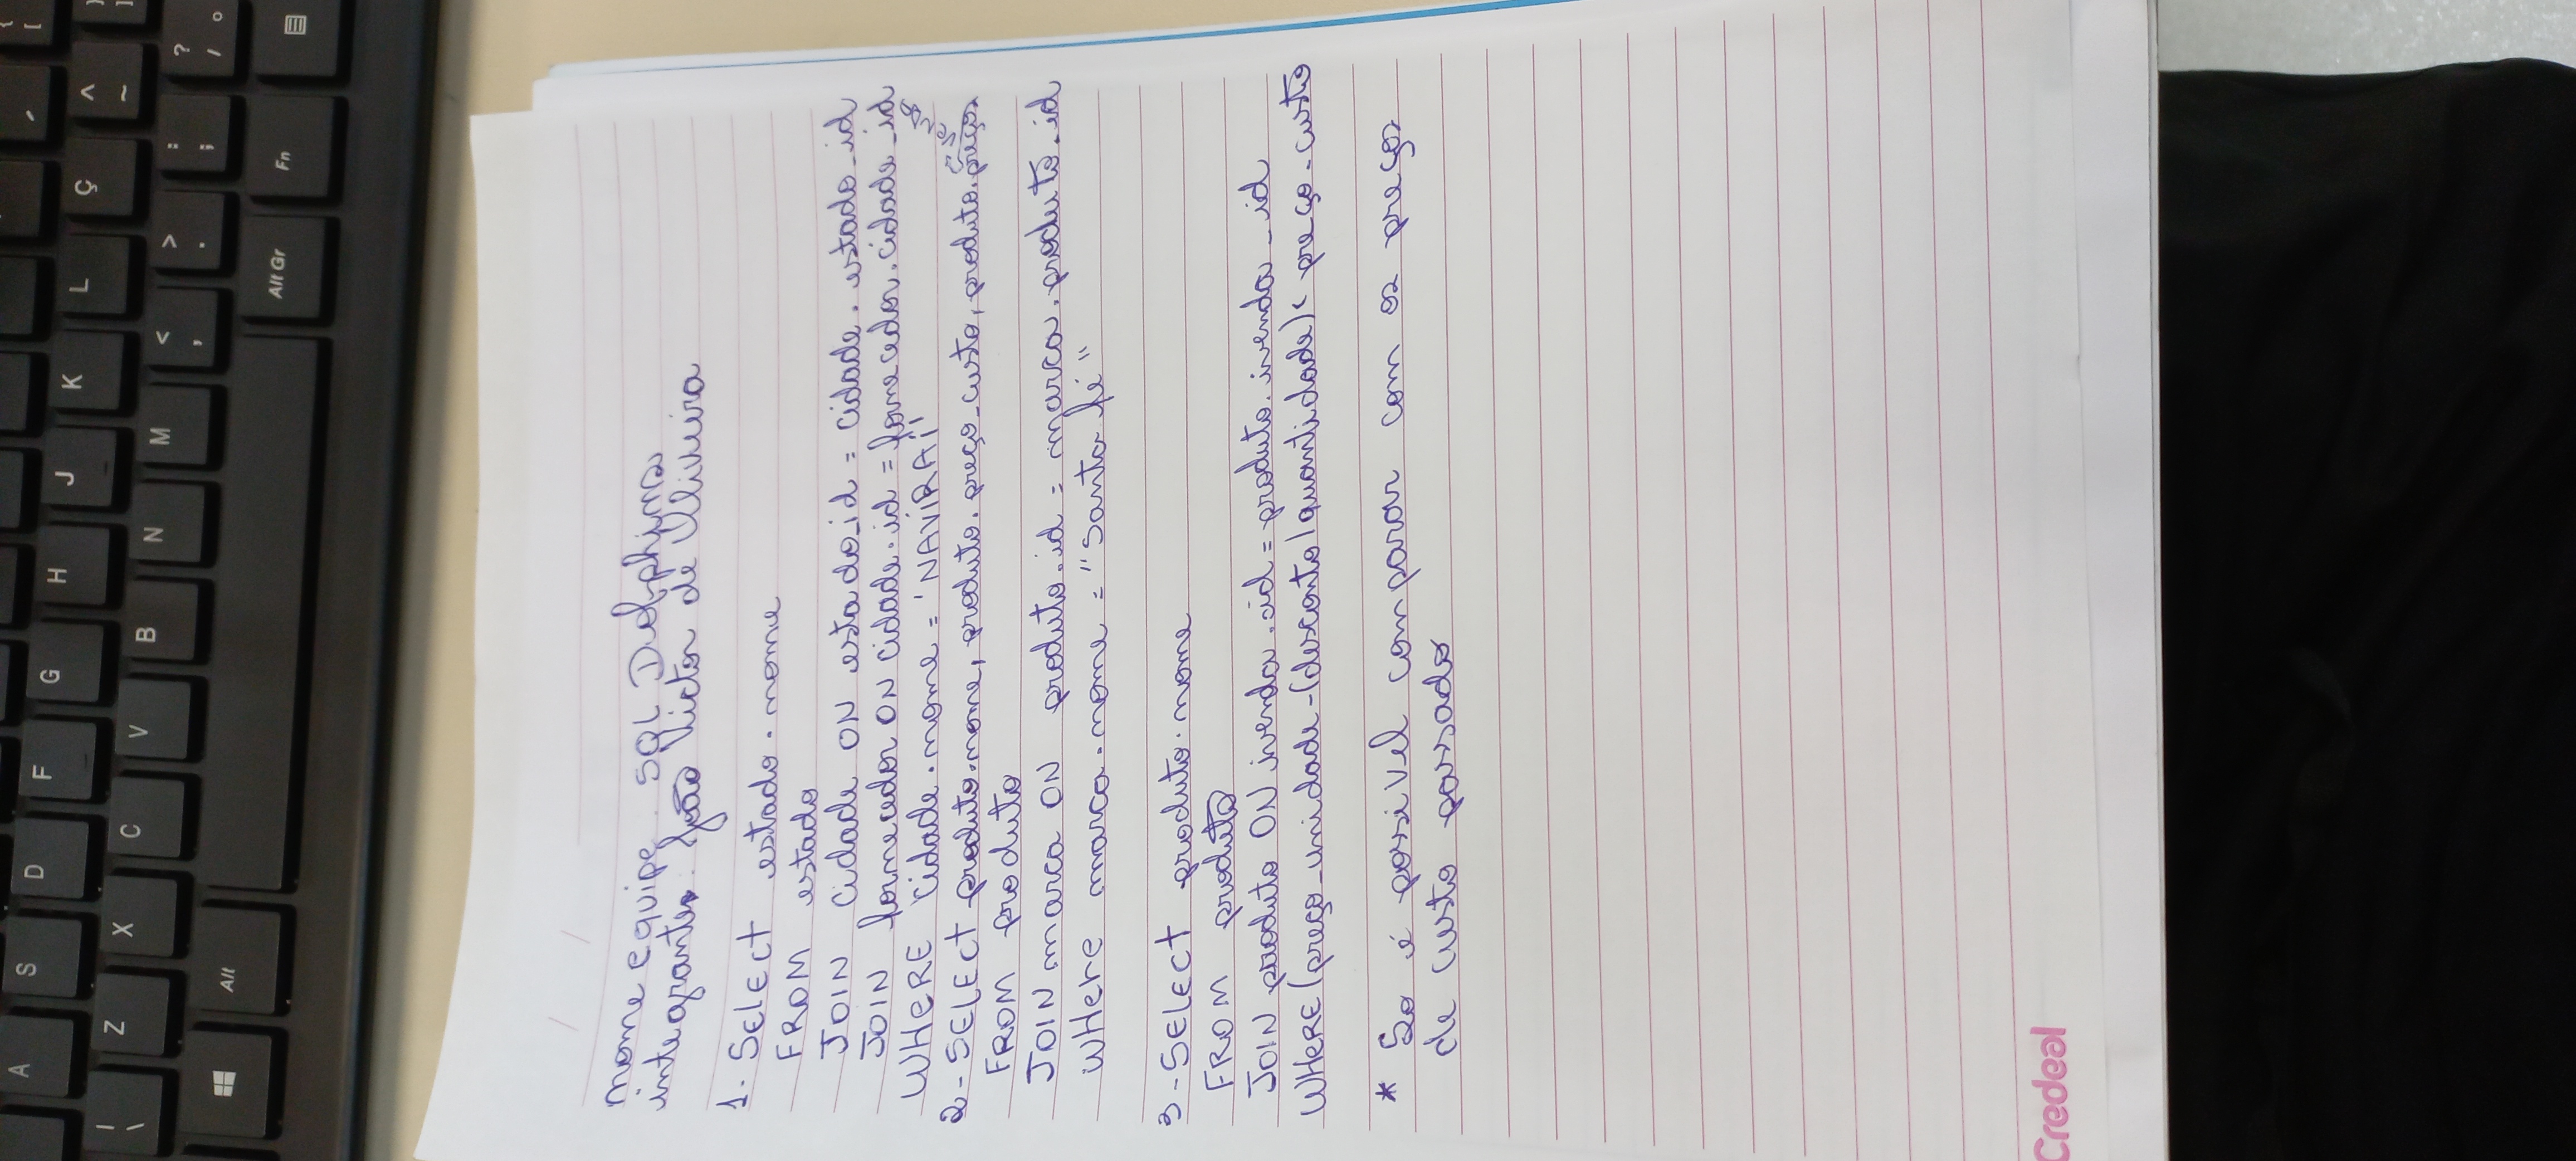 A S D F G H J K L Ç ^ ~ { [
| \ Z X C V B N M < , > . : ; ? / °
Alt Alt Gr Fn
nome equipe. SQL Dolphins
integrantes: João Victor de Oliveira
1. SELECT estado.nome
FROM estado
JOIN cidade ON estado_id = cidade.estado_id
JOIN fornecedor ON cidade.id = fornecedor.cidade_id
WHERE cidade.nome = 'NAVIRAÍ'
2- SELECT produto.nome, produto.preço_custo, produto.preços_venda
FROM produto
JOIN marca ON produto.id = marca.produto_id
WHere marca.nome = "Santa fé"
3- SELECT produto.nome
FROM produto
JOIN produto ON ivenda.id = produto.ivenda_id
WHERE (preço_unidade-(desconto/quantidade)< preço_custo
* So é possivel comparar com os preços
de custo passado
Credeal